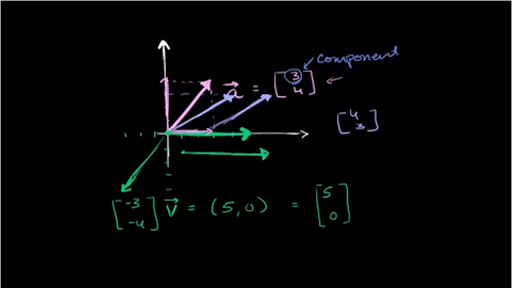 component
a⃗ = [3 4]
[4 3]
[-3 -4] v⃗ = (5,0) = [5 0]